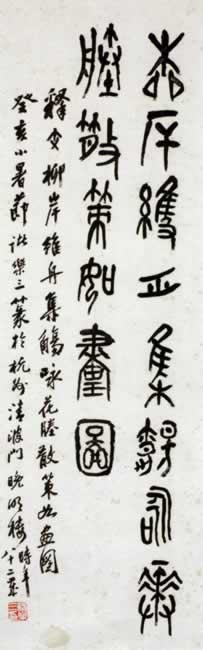 柳岸維舟集觴詠華
塍散策如畫圖
釋文柳岸維舟集觴詠花塍散策如畫圖
癸亥小暑節諸樂三篆於杭州清波門晚晴樓時年
八十二歲